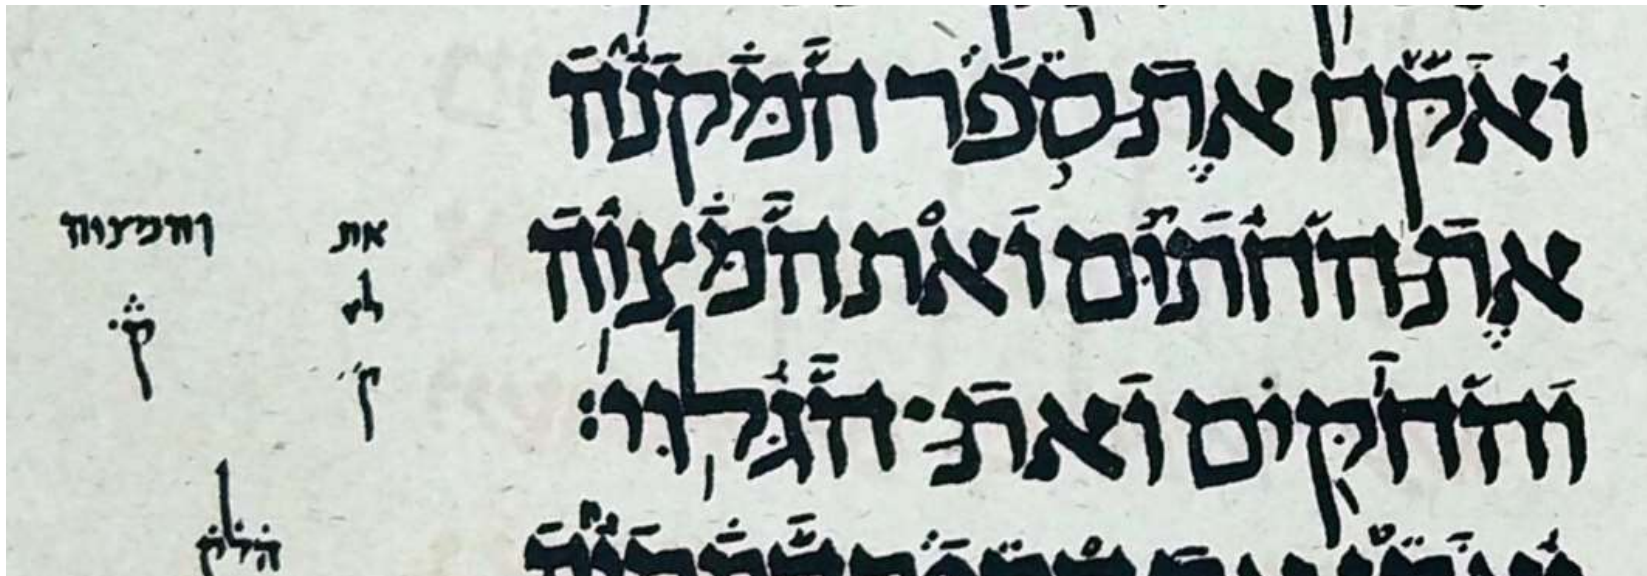 ואקח את ספר המקנה
את החתום ואת המצוה
והחקים ואת הגלוי׃
את
והמצוה
ק̇